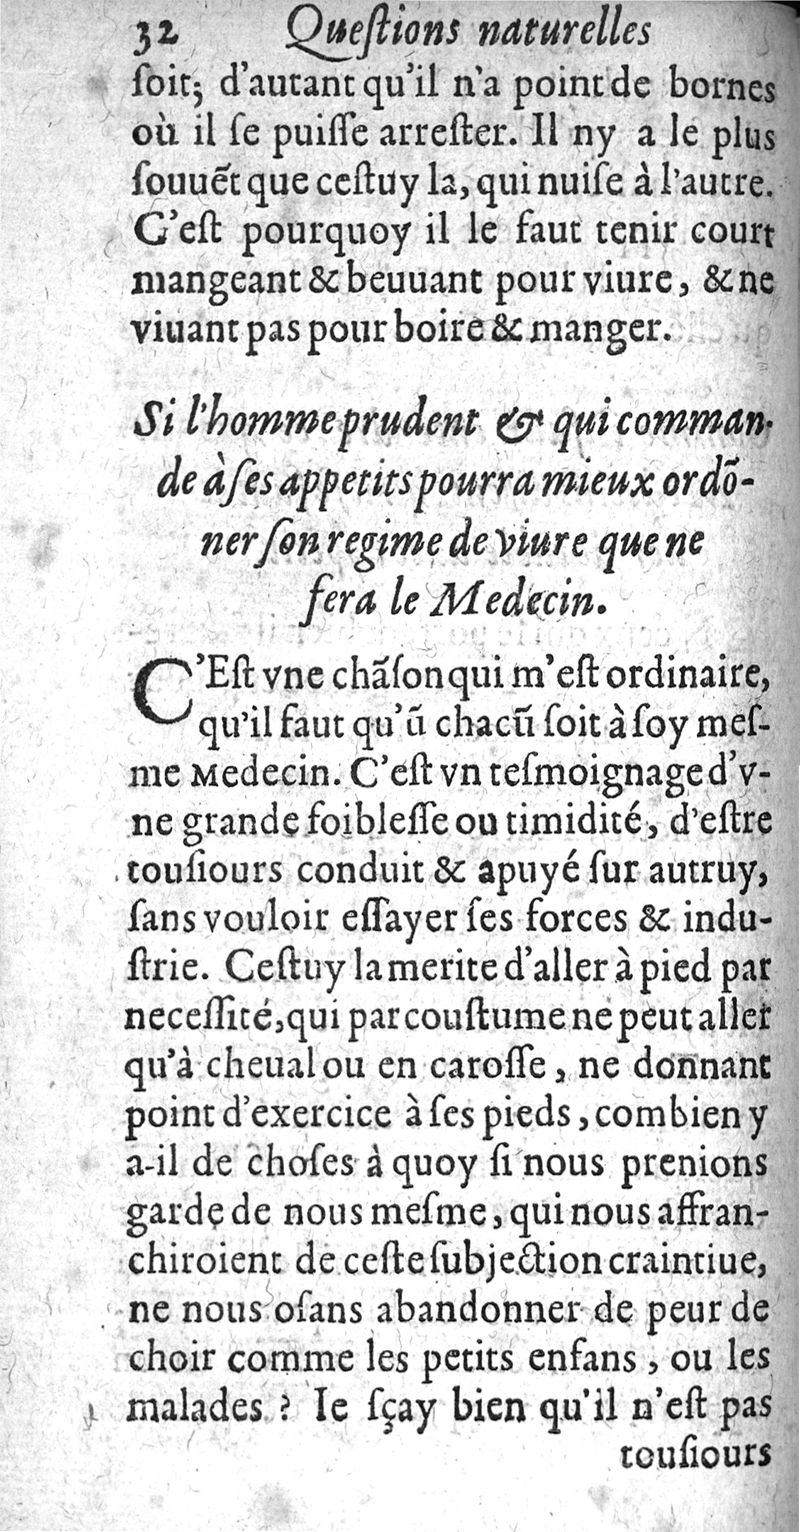 32 Queſtions naturelles
ſoit; d'autant qu'il n'a point de bornes
où il ſe puiſſe arreſter. Il ny a le plus
ſouuẽt que ceſtuy la, qui nuiſe à l'autre.
C'eſt pourquoy il le faut tenir court
mangeant & beuuant pour viure, & ne
viuant pas pour boire & manger.
Si l'homme prudent & qui comman-
de à ſes appetits pourra mieux ordõ-
ner ſon regime de viure que ne
fera le Medecin.
C'Eſt vne chãſon qui m'eſt ordinaire,
qu'il faut qu'ũ chacũ ſoit à ſoy meſ-
me Medecin. C'eſt vn teſmoignage d'v-
ne grande foibleſſe ou timidité, d'eſtre
touſiours conduit & apuyé ſur autruy,
ſans vouloir eſſayer ſes forces & indu-
ſtrie. Ceſtuy la merite d'aller à pied par
neceſſité, qui par couſtume ne peut aller
qu'à cheual ou en caroſſe, ne donnant
point d'exercice à ſes pieds, combien y
a-il de choſes à quoy ſi nous prenions
garde de nous meſme, qui nous affran-
chiroient de ceſte ſubjection craintiue,
ne nous oſans abandonner de peur de
choir comme les petits enfans, ou les
malades ? Ie ſçay bien qu'il n'eſt pas
touſiours